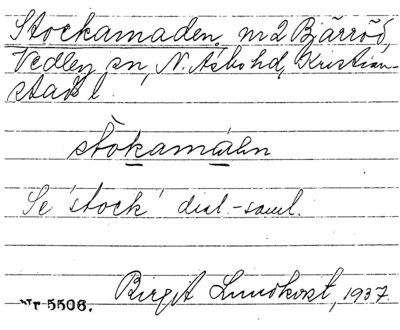 Stockamaden, nr 2 Bjärröd,
Vedby sn, N. Åsbo hd, Kristian-
stads l.
stòkamáhn
Se 'stock' dial.-saml.
Birgit Lundkvist, 1937.
Nr 5506.